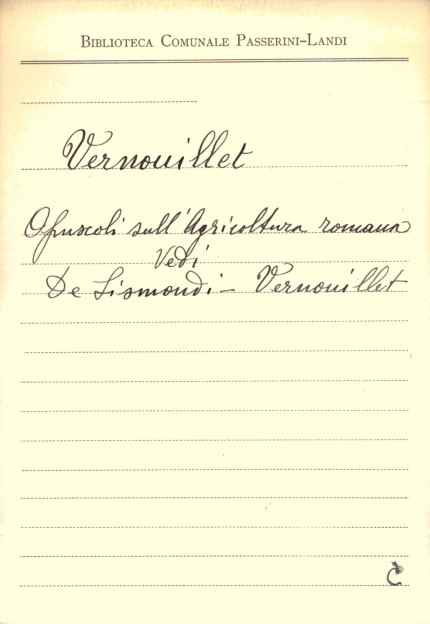 BIBLIOTECA COMUNALE PASSERINI-LANDI
Vernouillet
Opuscoli sull'Agricoltura romana
Vedi
De Sismondi - Vernouillet